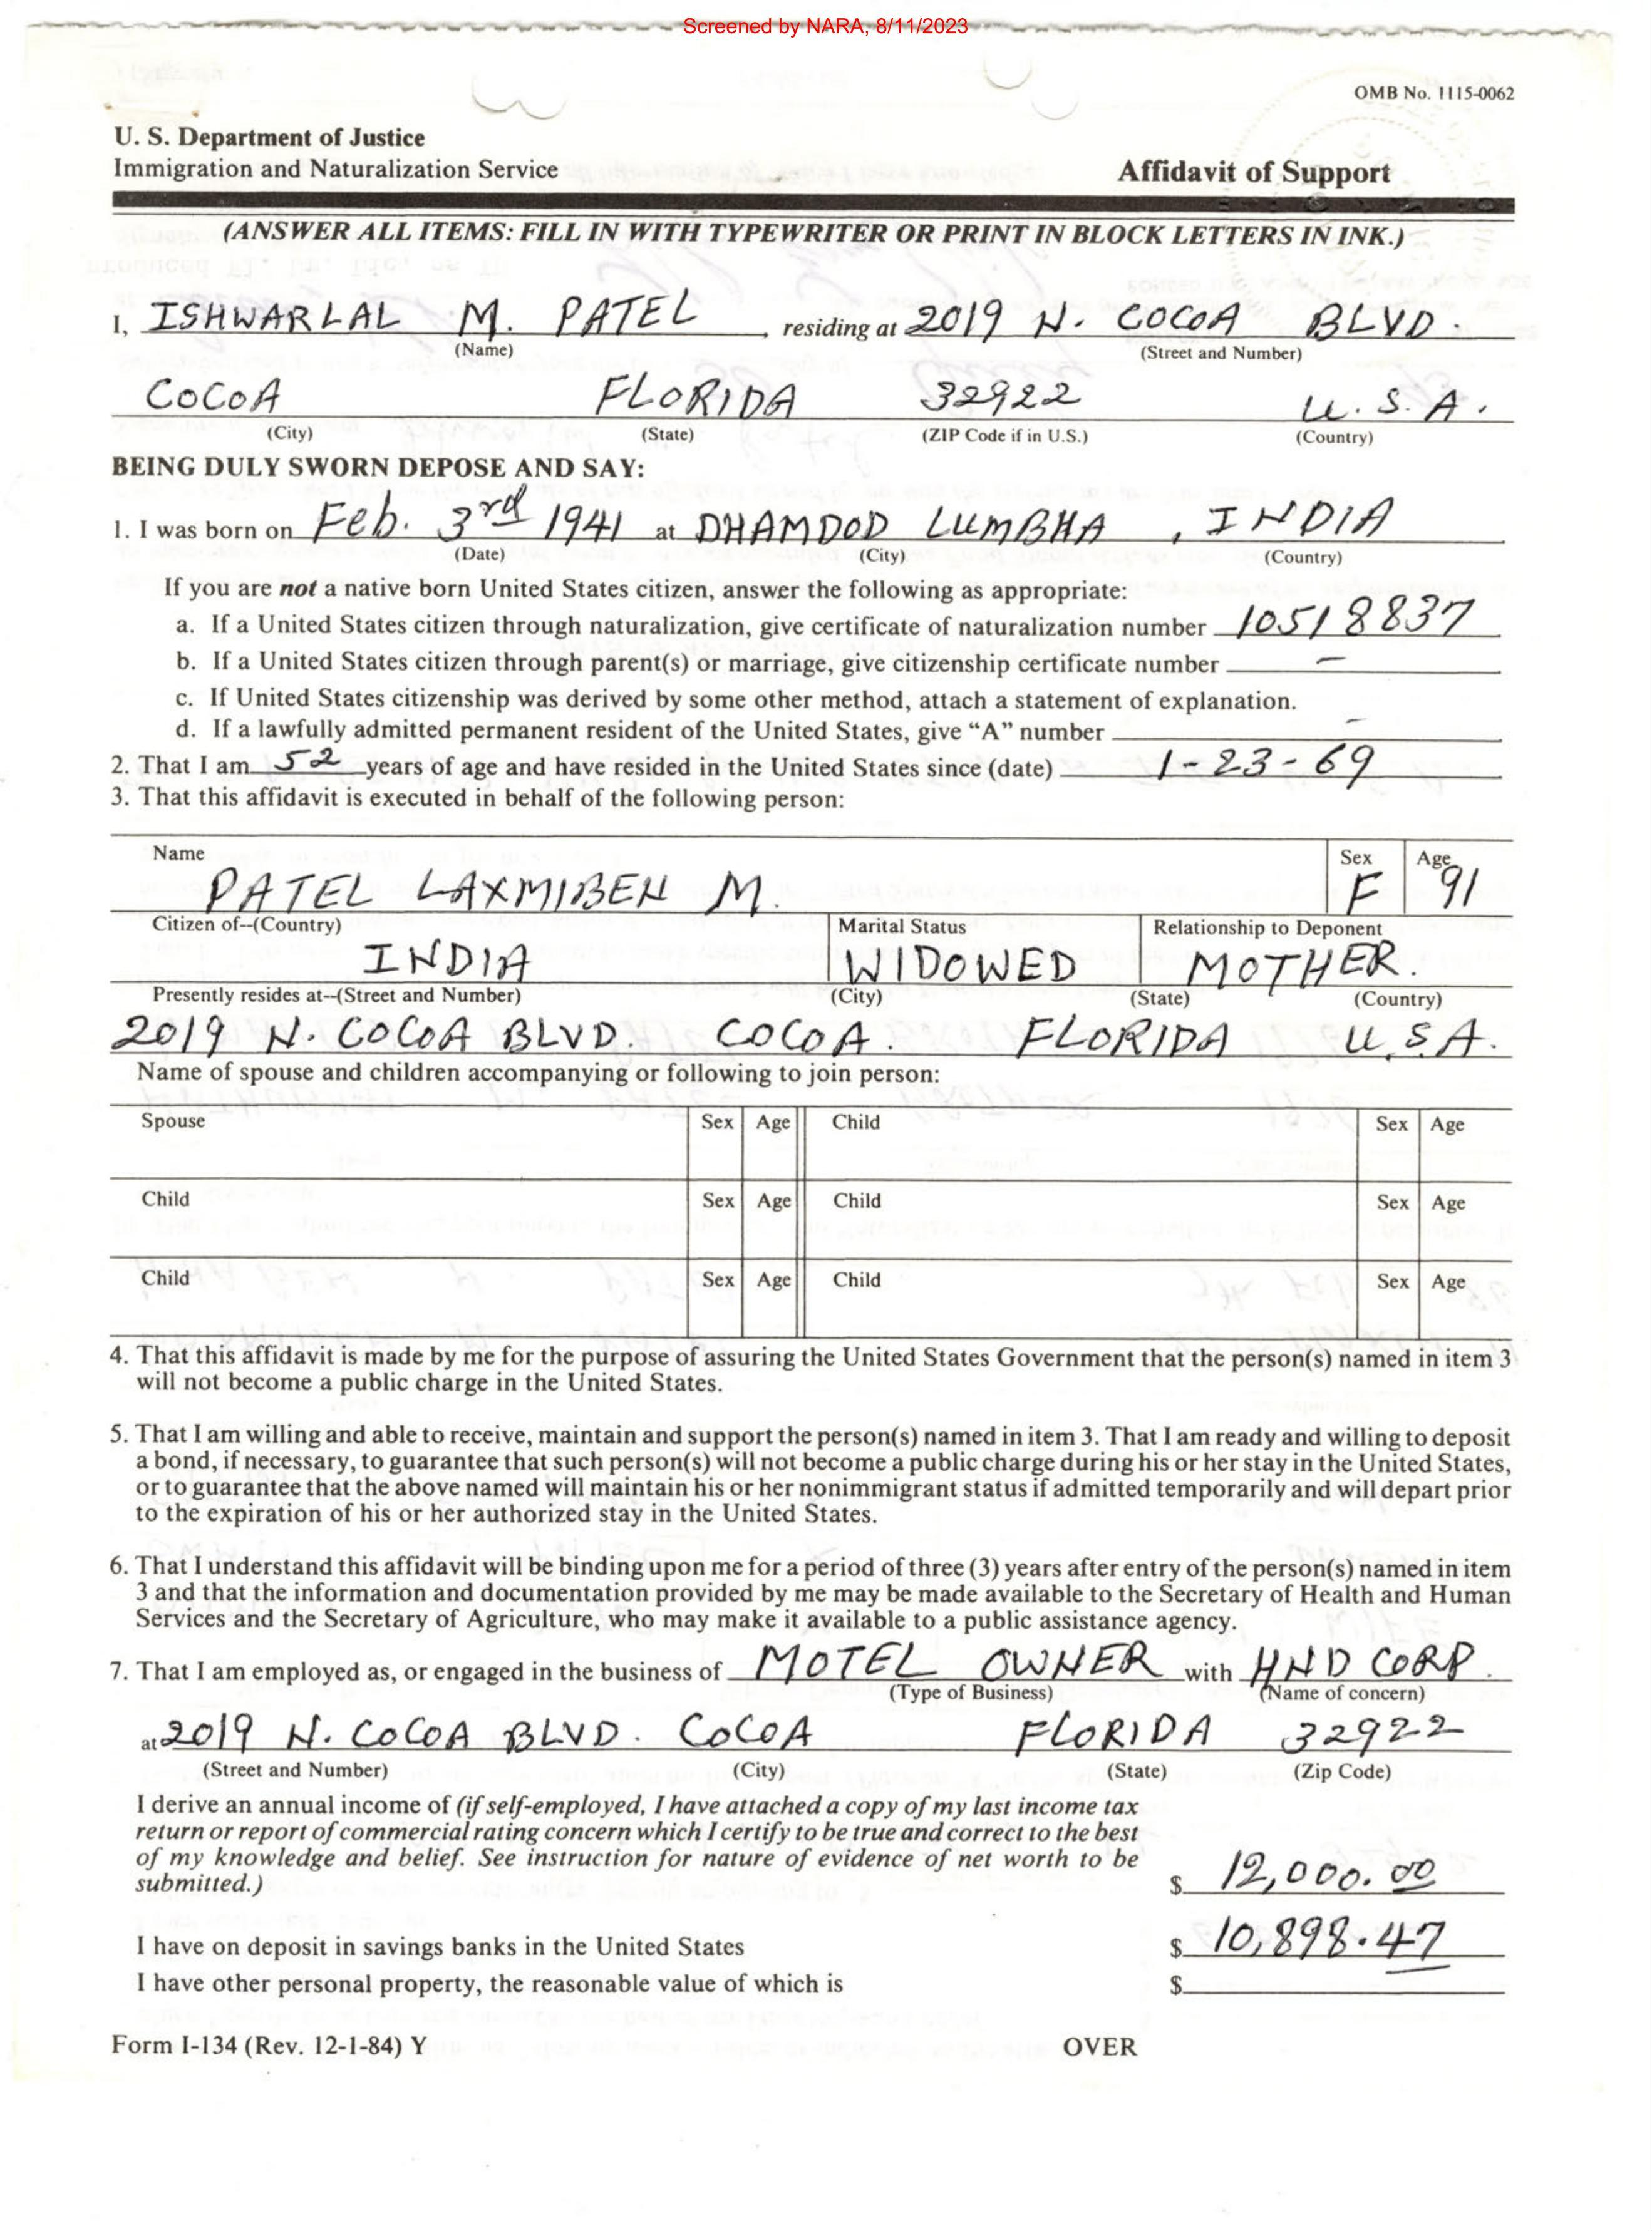 Screened by NARA, 8/11/2023
OMB No. 1115-0062
U. S. Department of Justice
Immigration and Naturalization Service
Affidavit of Support
(ANSWER ALL ITEMS: FILL IN WITH TYPEWRITER OR PRINT IN BLOCK LETTERS IN INK.)
I, ISHWARLAL M. PATEL, residing at 2019 N. COCOA BLVD.
(Name) (Street and Number)
COCOA FLORIDA 32922 U. S. A.
(City) (State) (ZIP Code if in U.S.) (Country)
BEING DULY SWORN DEPOSE AND SAY:
1. I was born on Feb. 3rd 1941 at DHAMDOD LUMBHA, INDIA
(Date) (City) (Country)
If you are not a native born United States citizen, answer the following as appropriate:
a. If a United States citizen through naturalization, give certificate of naturalization number 10518837
b. If a United States citizen through parent(s) or marriage, give citizenship certificate number –
c. If United States citizenship was derived by some other method, attach a statement of explanation.
d. If a lawfully admitted permanent resident of the United States, give “A” number –
2. That I am 52 years of age and have resided in the United States since (date) 1-23-69
3. That this affidavit is executed in behalf of the following person:
Name Sex Age
PATEL LAXMIBEN M. F 91
Citizen of--(Country) Marital Status Relationship to Deponent
INDIA WIDOWED MOTHER.
Presently resides at--(Street and Number) (City) (State) (Country)
2019 N. COCOA BLVD. COCOA. FLORIDA U.S.A.
Name of spouse and children accompanying or following to join person:
Spouse Sex Age Child Sex Age
Child Sex Age Child Sex Age
Child Sex Age Child Sex Age
4. That this affidavit is made by me for the purpose of assuring the United States Government that the person(s) named in item 3
will not become a public charge in the United States.
5. That I am willing and able to receive, maintain and support the person(s) named in item 3. That I am ready and willing to deposit
a bond, if necessary, to guarantee that such person(s) will not become a public charge during his or her stay in the United States,
or to guarantee that the above named will maintain his or her nonimmigrant status if admitted temporarily and will depart prior
to the expiration of his or her authorized stay in the United States.
6. That I understand this affidavit will be binding upon me for a period of three (3) years after entry of the person(s) named in item
3 and that the information and documentation provided by me may be made available to the Secretary of Health and Human
Services and the Secretary of Agriculture, who may make it available to a public assistance agency.
7. That I am employed as, or engaged in the business of MOTEL OWNER with HND CORP.
(Type of Business) (Name of concern)
at 2019 N. COCOA BLVD. COCOA FLORIDA 32922
(Street and Number) (City) (State) (Zip Code)
I derive an annual income of (if self-employed, I have attached a copy of my last income tax
return or report of commercial rating concern which I certify to be true and correct to the best
of my knowledge and belief. See instruction for nature of evidence of net worth to be
submitted.) $ 12,000.00
I have on deposit in savings banks in the United States $ 10,898.47
I have other personal property, the reasonable value of which is $
Form I-134 (Rev. 12-1-84) Y OVER